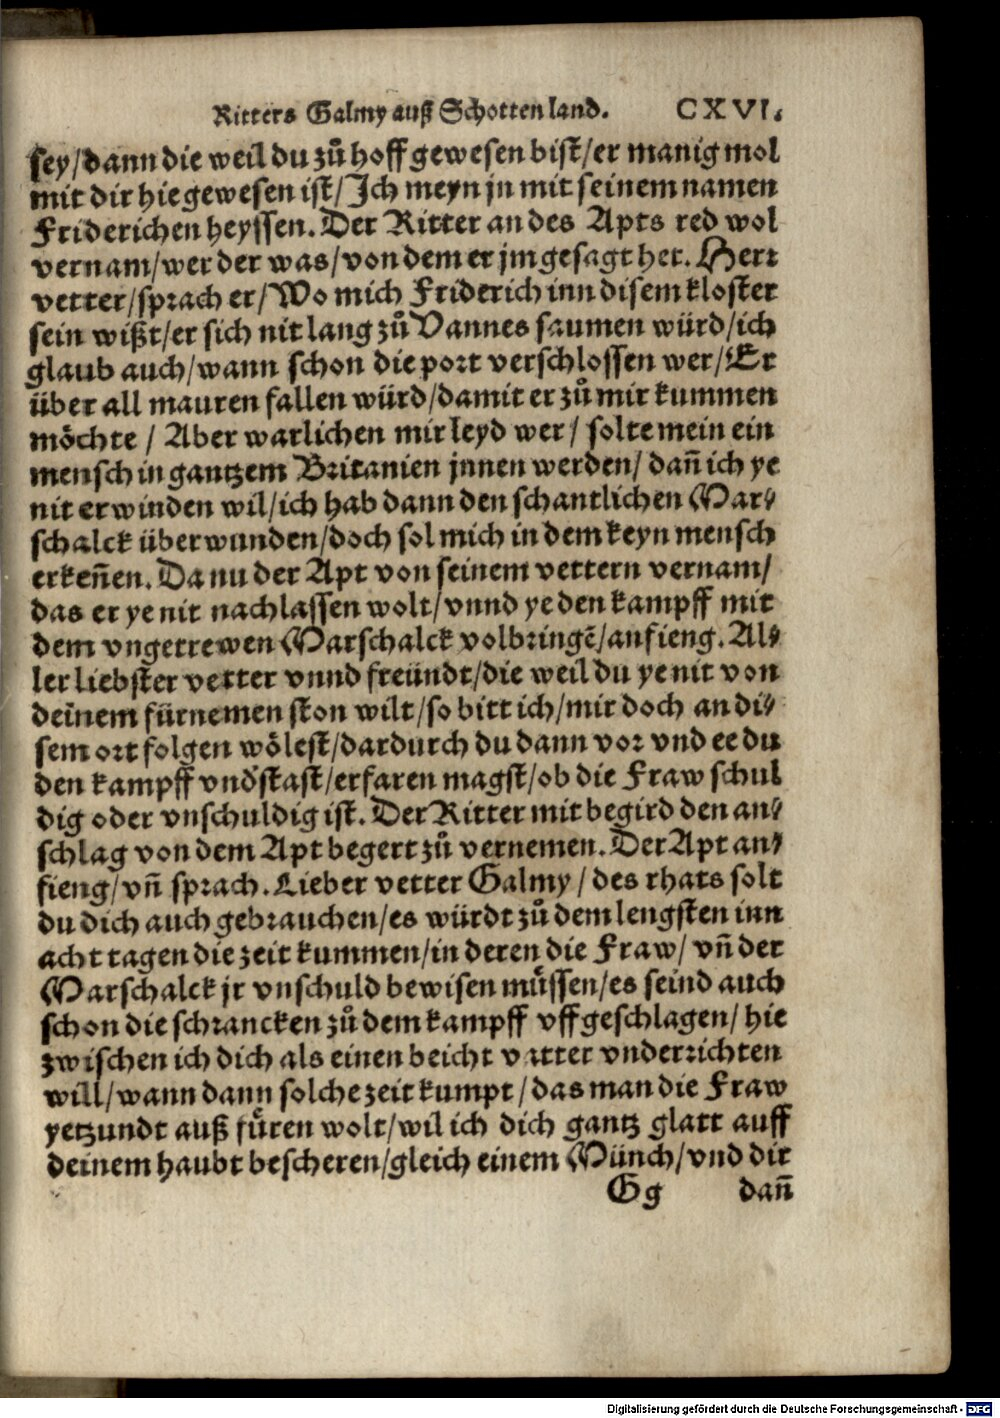 Ritters Galmy auß Schottenland. CXVI.
sey/dann die weil du zů hoff gewesen bist/er manig mol
mit dir hie gewesen ist/Ich meyn jn mit seinem namen
Friderichen heyssen. Der Ritter an des Apts red wol
vernam/wer der was/von dem er jm gesagt het. Herr
vetter/sprach er/Wo mich Friderich inn disem kloster
sein wißt/er sich nit lang zů Vannes saumen würd/ich
glaub auch/wann schon die port verschlossen wer/Er
über all mauren fallen würd/damit er zů mir kummen
möchte / Aber warlichen mir leyd wer / solte mein ein
mensch in gantzem Britanien jnnen werden/ dañ ich ye
nit erwinden wil/ich hab dann den schantlichen Mar⸗
schalck überwunden/doch sol mich in dem keyn mensch
erkeñen. Da nu der Apt von seinem vettern vernam/
das er ye nit nachlassen wolt/vnnd ye den kampff mit
dem vngetrewen Marschalck volbringẽ/anfieng. Al⸗
ler liebster vetter vnnd freündt/die weil du ye nit von
deinem fürnemen ston wilt/so bitt ich/mir doch an di⸗
sem ort folgen wölest/dardurch du dann vor vnd ee du
den kampff vnd̾stast/erfaren magst/ob die Fraw schul
dig oder vnschuldig ist. Der Ritter mit begird den an⸗
schlag von dem Apt begert zů vernemen. Der Apt an⸗
fieng/vñ sprach. Lieber vetter Galmy / des rhats solt
du dich auch gebrauchen/es würdt zů dem lengsten inn
acht tagen die zeit kummen/in deren die Fraw/ vñ der
Marschalck jr vnschuld bewisen müssen/es seind auch
schon die schrancken zů dem kampff vffgeschlagen/ hie
zwischen ich dich als einen beicht vatter vnderrichten
will/wann dann solche zeit kumpt/das man die Fraw
yetzundt auß füren wolt/wil ich dich gantz glatt auff
deinem haubt bescheren/gleich einem Münch/vnd dir
Gg dañ
Digitalisierung gefördert durch die Deutsche Forschungsgemeinschaft - DFG